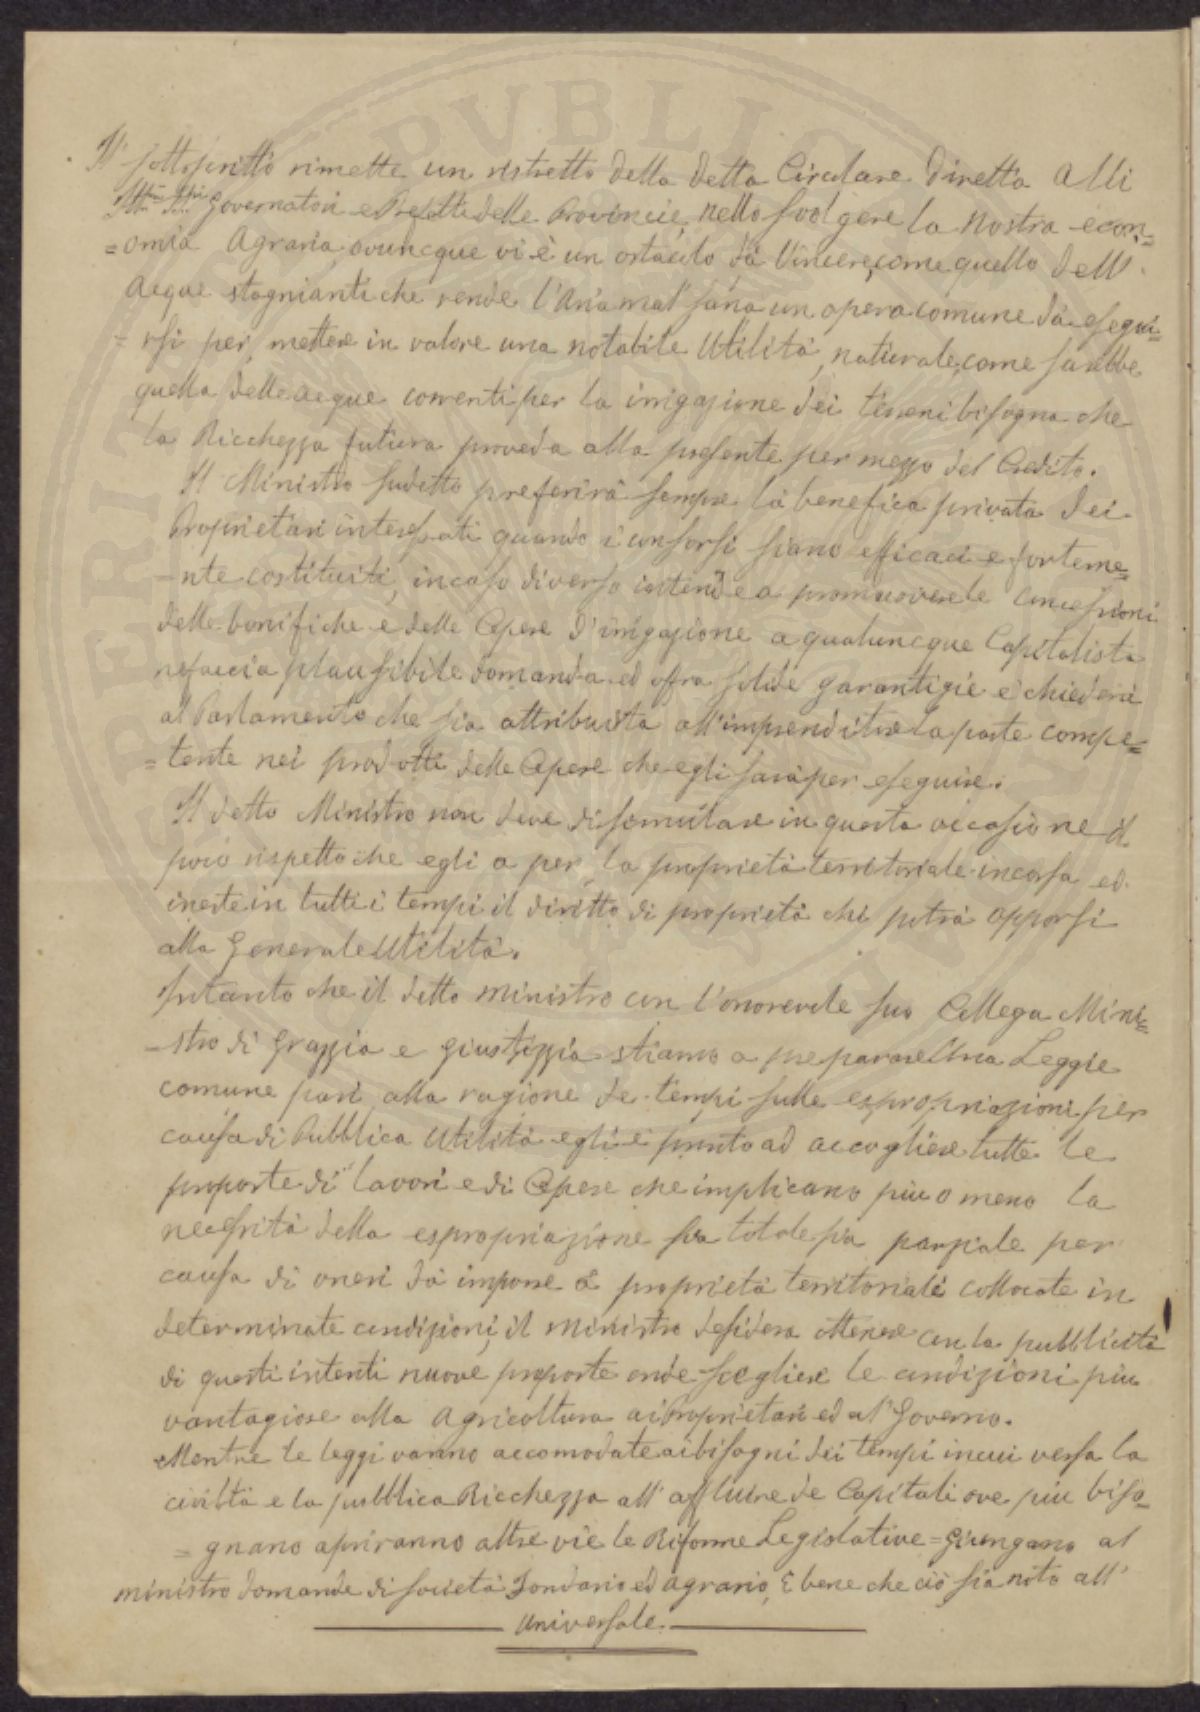 Il sottoscritto rimette un ristretto della detta Circolare diretta alli
Governatori e Prefetti delle Provincie, nello svolgere la nostra econ=
=omia Agraria, ovuncque vi è un ostacolo dà Vincere, come quello dell'
Acque stagnianti che rende l'Aria mal' sana un opera comune dà esegui=
=rsi per, mettere in valore una notabile Utilità, naturale, come sarebbe
quella delle acque correnti per la irrigazione dei terreni bisogna che
la Ricchezza futura proveda alla presente per mezzo del Credito.
Il Ministro sudetto preferirà sempre la benefica privata dei
Proprietari interessati quando i consorsi siano efficaci e forteme=
=nte costituiti, in caso diverso intende a promuovere le concessioni
delle bonifiche e delle Opere d'irrigazione a qualuncque Capitalista
ne faccia plausibile domanda ed offra solide garantigie e chiederà
al Parlamento che sia attribuita all'imprenditore la parte compe=
=tente nei prodotti delle Opere che egli sarà per eseguire.
Il detto Ministro non deve dissimulare in questa occasione il
poco rispetto che egli a per la proprietà territoriale incorsa ed
inerte in tutti i tempi il diritto di proprietà chi potrà opporsi
alla Generale Utilità.
Intanto che il detto ministro con l'onorevole suo Collega Mini=
=stro di Grazzia e Giustizzia stiamo a preparare Una Leggie
comune pari alla ragione de tempi sulle espropriazioni per
causa di Pubblica Utilità egli è pronto ad accogliere tutte le
proporte di lavori e di Opere che implicano più o meno la
necessità della espropriazione sia totale sia parziale per
causa di oneri dà imporre à proprietà territoriali collocate in
determinate condizioni, il ministro desidera ottenere con la pubblicità
di questi intenti nuove proporte onde scegliere le condizioni più
vantagiose alla Agricoltura ai Proprietari ed al' Governo.
Mentre le leggi vanno accomodate ai bisogni dei tempi in cui versa la
civiltà e la pubblica Ricchezza all' affluire de Capitali ove più biso=
=gnano apriranno altre vie le Riforme Legislative = Giungano al
ministro domande di società Fondario ed Agrario, è bene che ciò sia noto all'
Universale.